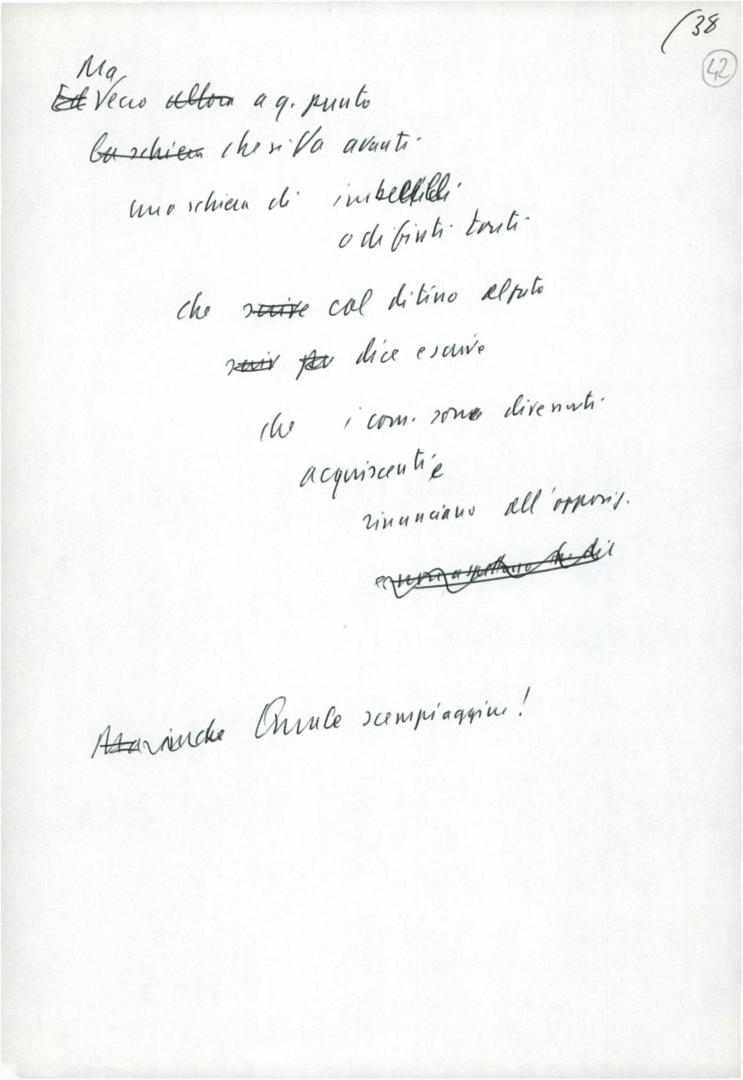 (38
42
Ma
Ed Ecco allora a q. punto
la schiera che si fa avanti
una schiera di imbecilli
o di finti tonti
che scrive col ditino alzato
scriv per dice e scrive
che i com. sono divenuti
acquiscenti e
rinunciano all'opposiz.
e non aspettano che di
Quale scempiaggine!